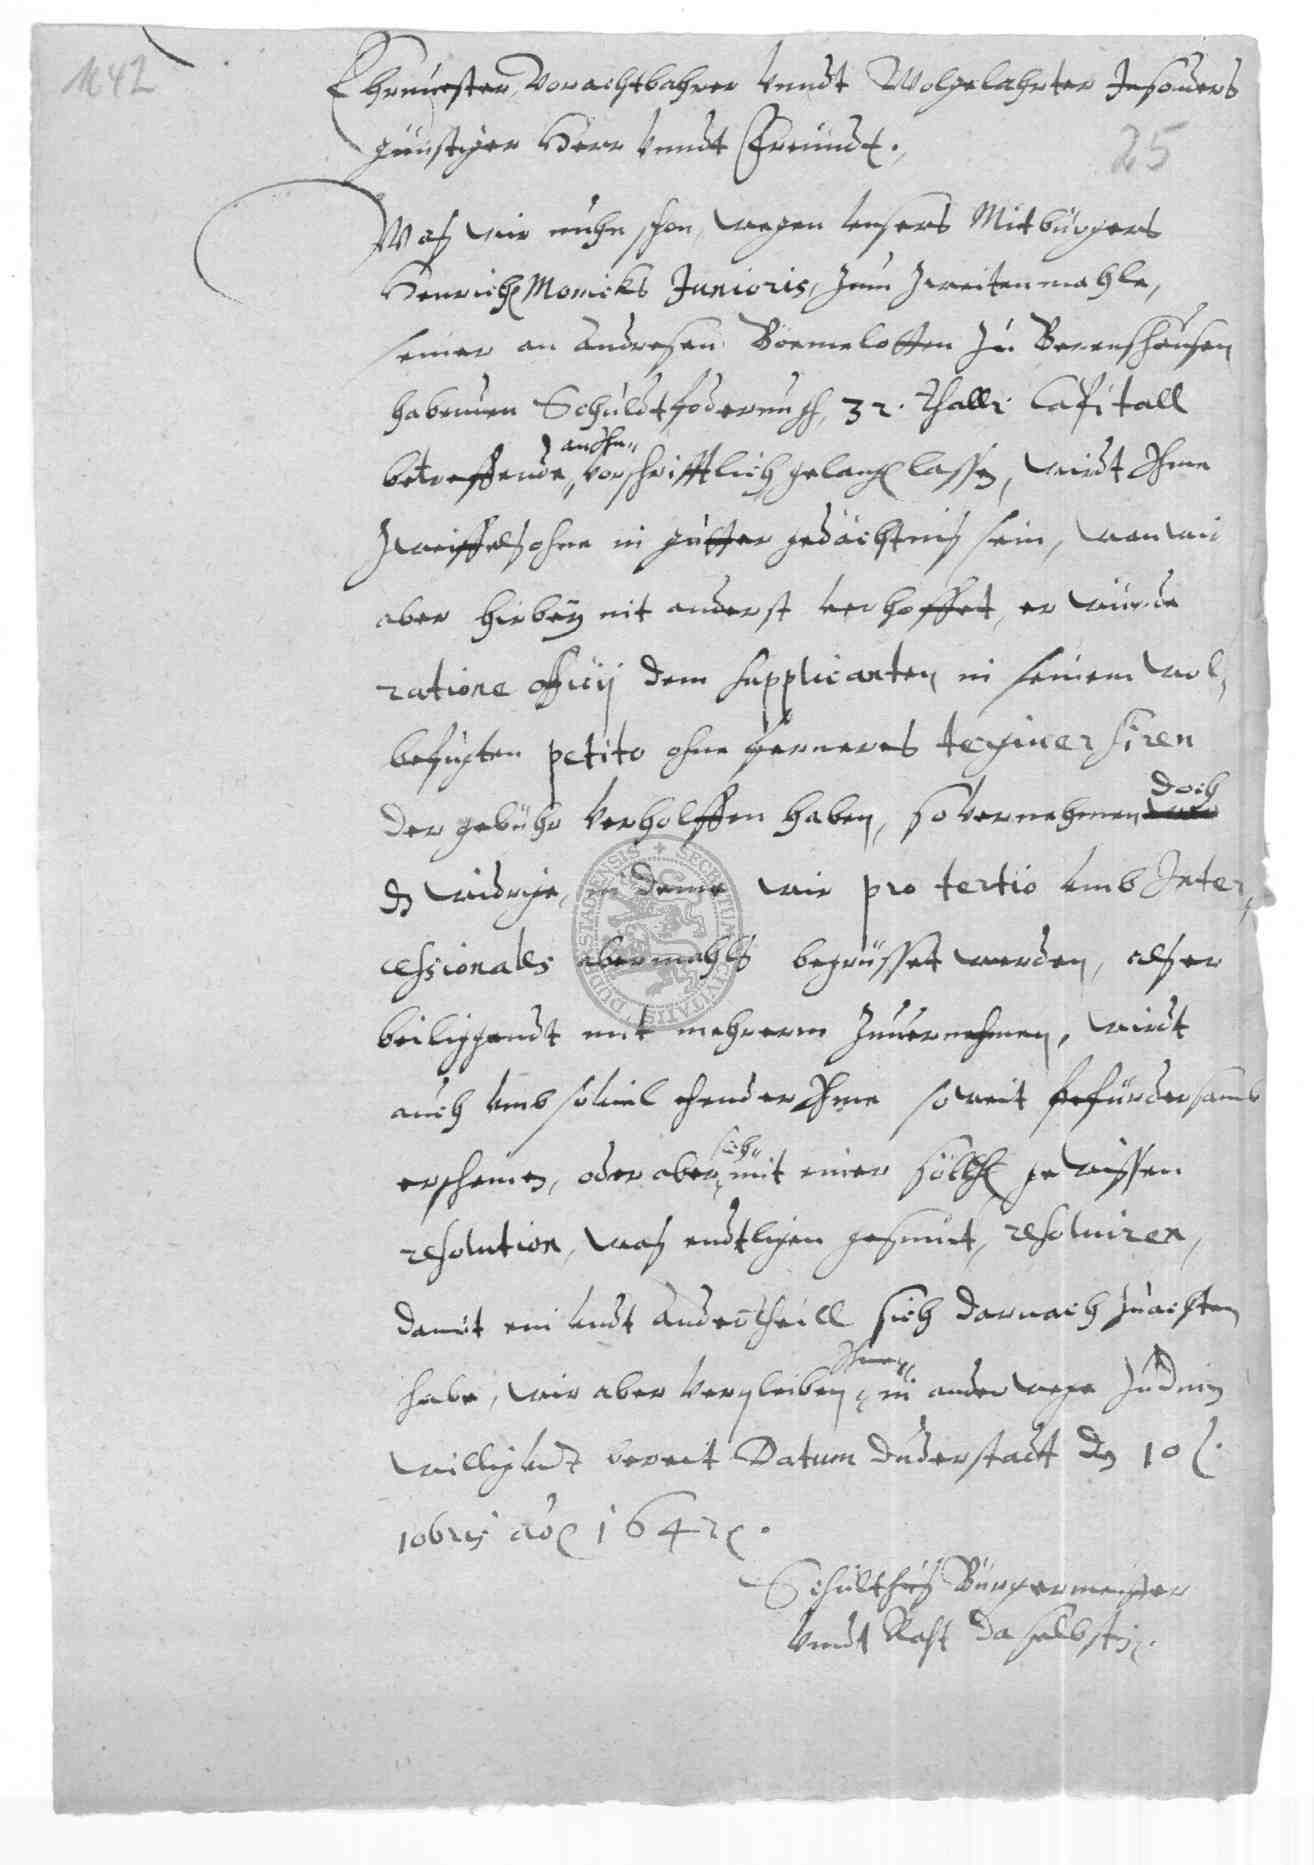 1642
Ehrnuester, Vorachtbahrer vnndt Wolgelahrter Insonders
günstiger Herr vnndt Freündt.
25
Waß wir nuhn schon, wegen vnsers Mitbürgers
Henrich Monicks Junioris, zum zweitenmahle,
seiner an Andresen Böemelotten zu Berenshausen
habenden Schuldtfoderung, 32. thallr. Capitall
betreffende, vorschrifftlich gelangen lassen, wirdt Ihme
an Ihn
zweiffelsohne in gutter gedächtnis sein, wan wir
aber hirbey nit anderst verhoffet, er würde
ratione officij dem supplicanten in seinem wol
befugten petito ohne ferneres tergiuersiren
der gebühr verholffen haben, so vernehmen doch
dz widrige, in deme wir pro tertio vmb Inter
cessionales abermahls begrüsset werden, alß er
beiliggendt mit mehrerm zuuernehmen, wirdt
auch vmb souiel ehender Ihme soweit befürdersamb
erscheinen, oder aber sich mit einer söllch gewissen
resolution, waß endtligen gesinnt, resoluiren,
damit ein vndt ander theill sich darnach zuachten
habe, wir aber verpleiben Ihme in ander wege zu dienen
willig vndt bereit Datum Duderstadt den 10
10bris ao 1642.
Schultheiß Bürgermeister
vnndt Raht daselbsten.
SECRETUM CIVITATIS DUDERSTADENSIS